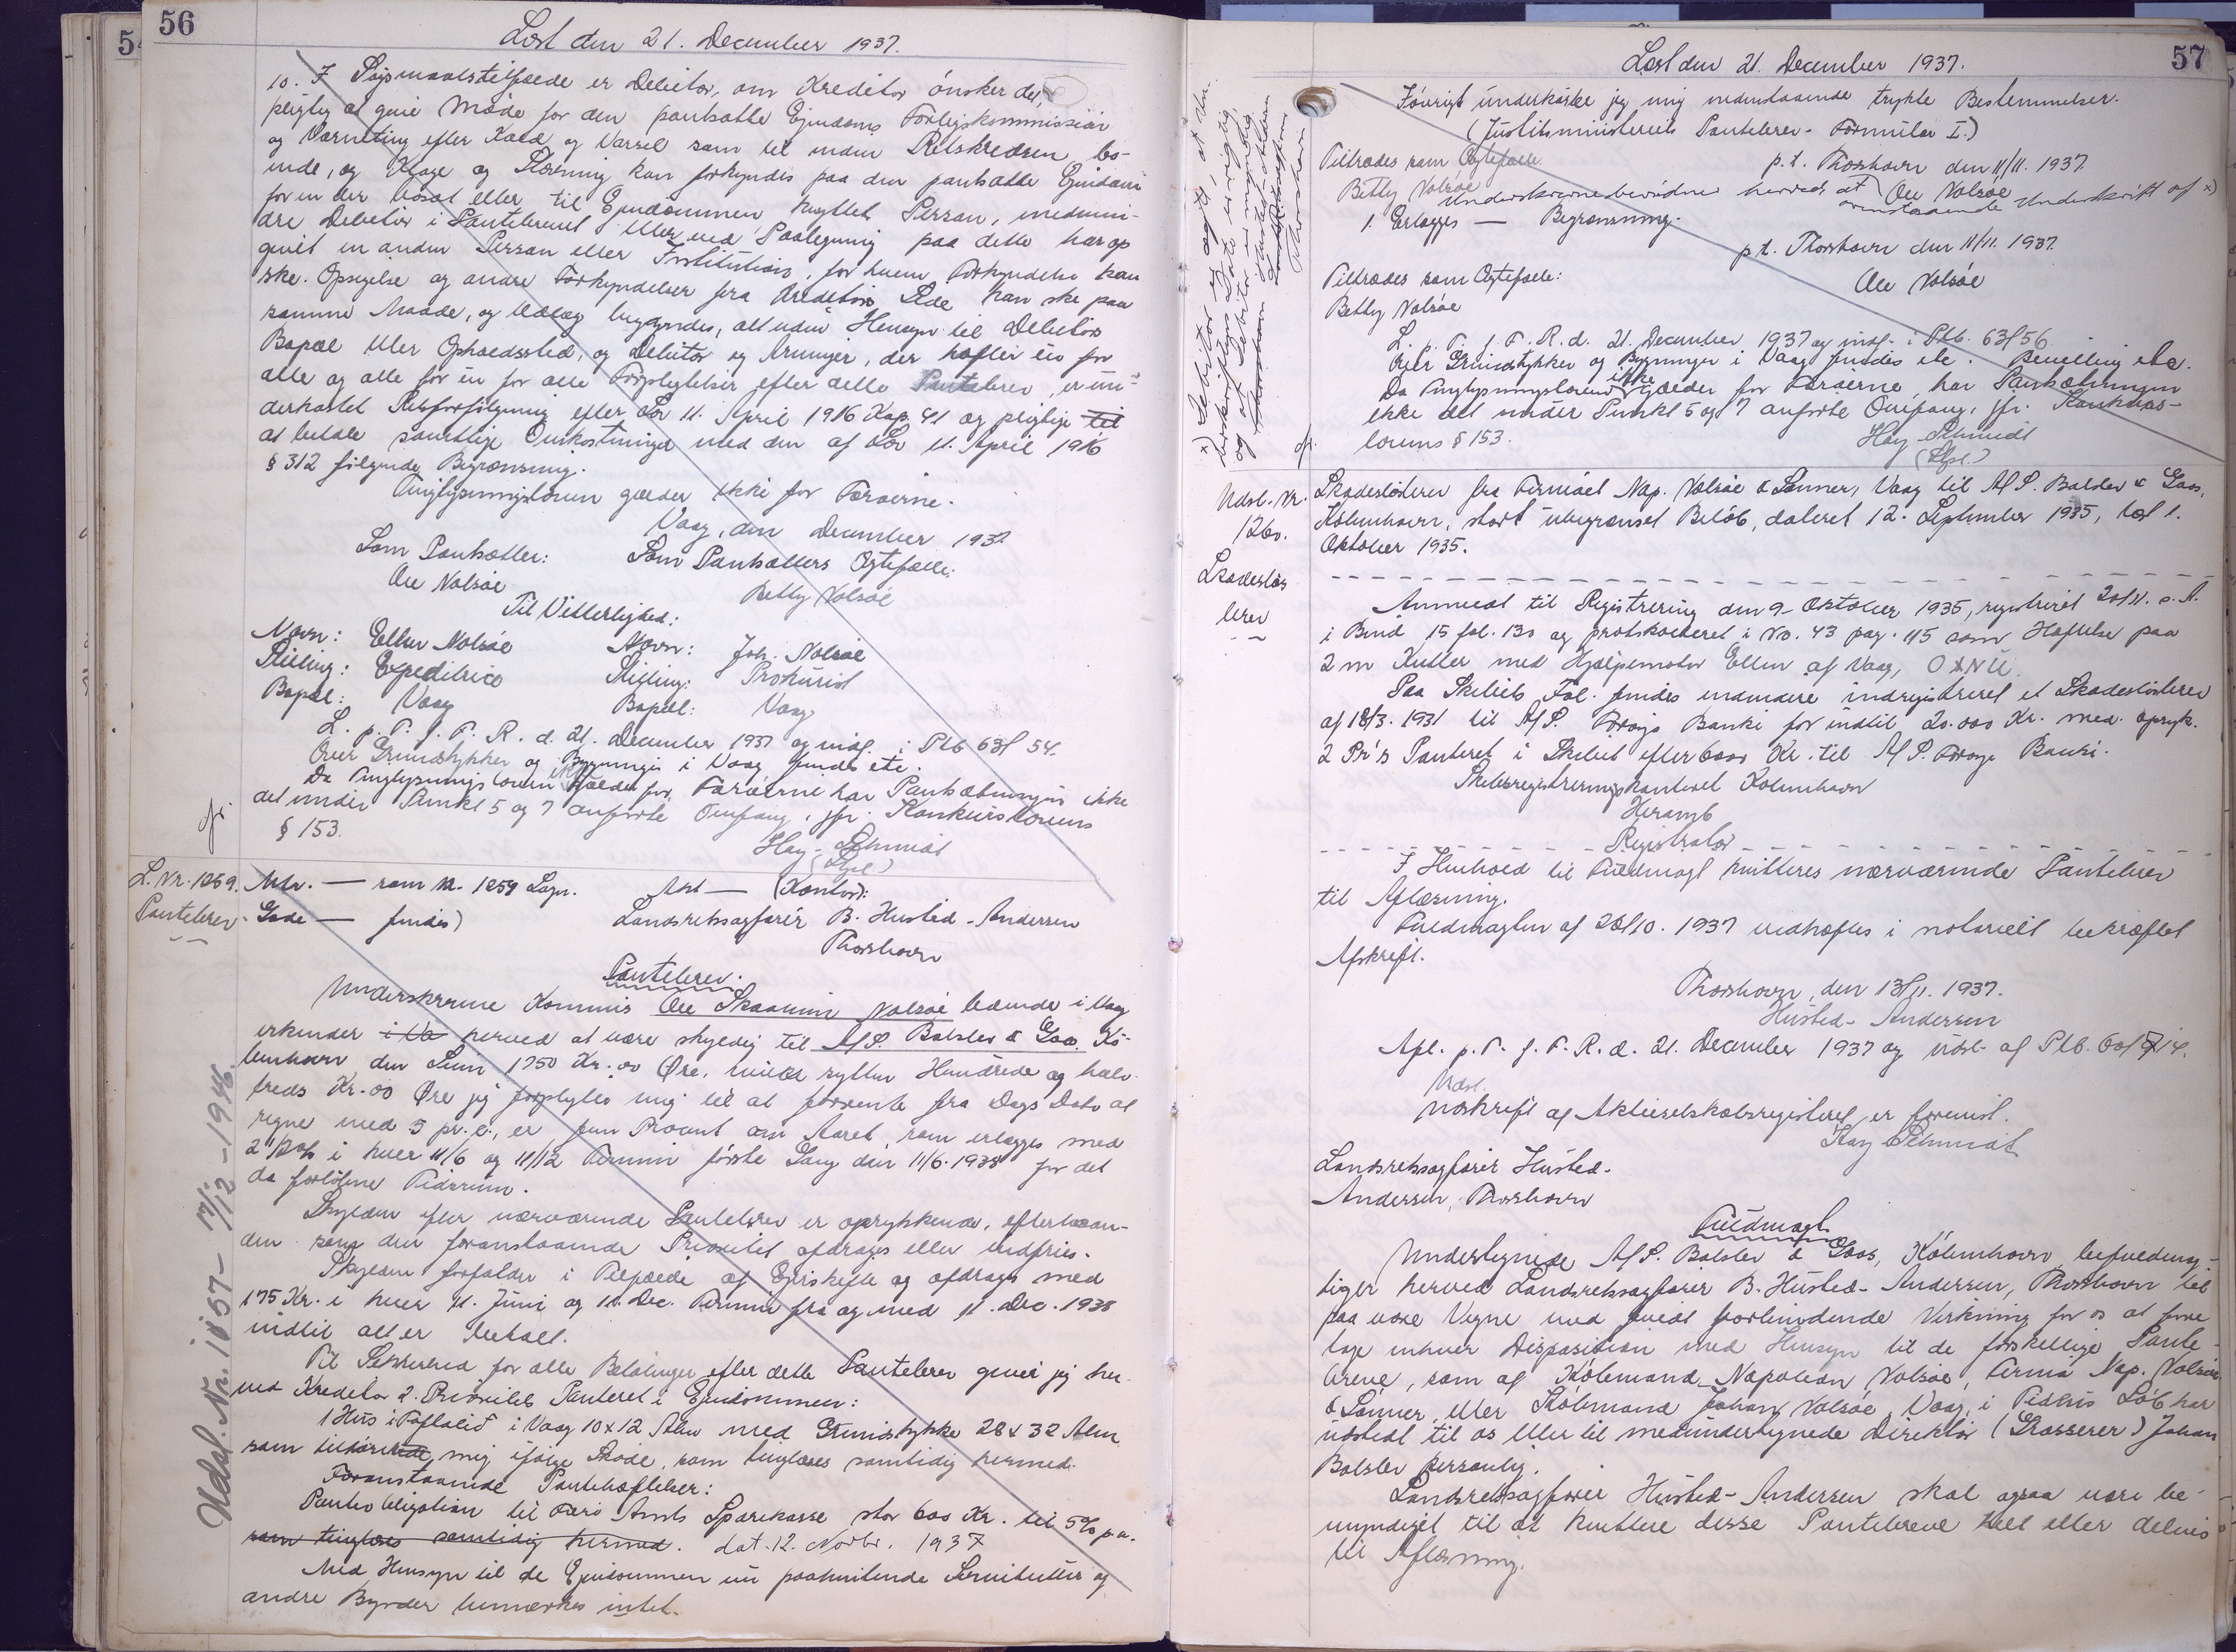 56
Læst den 21. December 1937.
10. I Søgsmaalstilfælde er Debitor, om Kreditor ønsker det,
pligtig at give Møde for den pantsatte Ejendoms Forligskommission
og Værneting efter Kald og Varsel som til inden Retskredsen bo-
ende, og Klage og Stævning kan forkyndes paa den pantsatte Ejendom
for en der bosat eller til Ejendommen knyttet Person, medmin-
dre Debitor i Pantebrevet eller ved Paategning paa dette har op
givet en anden Person eller Institution, for hvem Forkyndelse kan
ske. Opsigelse og andre Forkyndelser fra Kreditors Side kan ske paa
samme Maade, og Udlæg begyndes, alt uden Hensyn til Debitors
Bopæl eller Opholdssted, og Debitor og Arvinger, der hæfter én for
alle og alle for én for alle Forpligtelser efter dette Pantebrev, er un-
derkastet Retsforfølgning efter Lov 11. April 1916 Kap. 41 og pligtige til
at betale samtlige Omkostninger med den af Lov 11. April 1916
§ 312 følgende Begrænsning.
Tinglysningsloven gælder ikke for Færøerne.
Vaag, den December 1937
Som Pantsætter: Som Pantsætters Ægtefælle:
Ole Nolsøe Betty Nolsøe
Til Vitterlighed:
Navn: Ellen Nolsøe Navn: Joh. Nolsøe
Stilling: Expeditrice Stilling: Prokurist
Bopæl: Vaag Bopæl: Vaag
L. p. T. f. F. R. d. 21. December 1937 og indf. i Ptb 63f 54.
Over Grundstykker og Bygninger i Vaag findes etc.
Da Tinglysningsloven ikke gælder for Færøerne har Pantsætningen ikke
det under Punkt 5 og 7 anførte Omfang, jfr. Konkurslovens
§ 153.
Hay-Schmidt
(Spl.)
gr.
L. Nr. 1259.
Pantebrev
Mtr. — som Nr. 1259 Lagn. Anl — (Kontor):
Gade — findes) Landsretssagfører B. Husted-Andersen
Thorshavn
Pantebrev.
Underskrevne Kommis Ole Skaaning Nolsøe boende i Vaag
erkender i Va herved at være skyldig til A/S. Balslev & Goos. Kø-
benhavn den Sum 1750 Kr. 00 Øre, hvilke sytten Hundrede og halv-
treds Kr. 00 Øre jeg forpligter mig til at forrente fra Dags Dato at
regne med 5 pr. c., er fem Procent om Aaret, som erlægges med
2 1/2 % i hver 11/6 og 11/12 Termin første Gang den 11/6. 1938 for det
da forløbne Tidsrum.
Skylden efter nærværende Pantebrev er oprykkende, efterhaan-
den som den foranstaaende Prioritet afdrages eller indfries.
Skylden forfalder i Tilfælde af Ejerskifte og afdrages med
175 Kr. i hver 11. Juni og 11. Dec. Termin fra og med 11. Dec. 1938
indtil alt er betalt.
Til Sikkerhed for alle Betalinger efter dette Pantebrev giver jeg her-
ved Kreditor 2. Prioritets Panteret i Ejendommen:
1 Hus i Toftalið i Vaag 10 x 12 Alen med Grundstykke 28 x 32 Alen
som tilhørende mig ifølge Skøde, som tinglæses samtidig hermed.
Foranstaaende Pantehæftelser:
Panteobligation til Færø Amts Sparekasse stor 600 Kr. til 5% p.a.
som tinglæses samtidig hermed. dat. 12. Novbr. 1937
Med Hensyn til de Ejendommen iøvr. paahvilende Servitutter og
andre Byrder bemærkes intet.
Udsl. Nr. 1157 - 17/12 - 1946.
57
Læst den 21. December 1937.
Iøvrigt underkaster jeg mig nedenstaaende trykte Bestemmelser.
(Justitsministeriets Pantebrev-Formular I.)
Tiltrædes som Ægtefælle. p.t. Thorshavn den 11/11. 1937.
Betty Nolsøe Ole Nolsøe
Underskrevne bevidner herved at ovenstaaende Underskrift af x)
1. Erlægges — Begrænsning.
p.t. Thorshavn den 11/11. 1937.
Tiltrædes som Ægtefælle: Ole Nolsøe
Betty Nolsøe
L. p. T. f. F. R. d. 21. December 1937 og indf. i Ptb. 63f 56.
Over Grundstykker og Bygninger i Vaag findes etc. Bevilling etc.
Da Tinglysningsloven ikke gælder for Færøerne, har Pantsætningen
ikke det under Punkt 5 og 7 anførte Omfang, jfr. Konkurs-
lovens § 153.
gr.
Hay-Schmidt
(Spl.)
Udsl. Nr.
126o.
Skadesløs
brev
Skadesløsbrev fra Firmaet Nap. Nolsøe & Sønner, Vaag til A/S. Balslev & Goos,
København, stort ubegrænset Beløb, dateret 12. September 1935, læst 1.
Oktober 1935.
Anmeldt til Registrering den 9. Oktober 1935, registreret 20/11. s. A.
i Bind 15 fol. 130 og protokolleret i No. 43 pag. 115 som Hæftelse paa
2 m Kutter med Hjælpemotor Ellen af Vaag, OXNU.
Paa Skibets Fol. findes endvidere indregistreret et Skadesløsbrev
af 18/3. 1931 til A/S. Føroya Banki for indtil 20.000 Kr. med opryk.
2 Pr's Panteret i Skibet efter 6000 Kr. til A/S. Føroya Banki.
Skibsregistreringskontoret København
Registrator
I Henhold til Fuldmagt kvitteres nærværende Pantebrev
til Aflæsning.
Fuldmagten af 28/10. 1937 vedhæftes i notarielt bekræftet
Afskrift.
Thorshavn, den 13/11. 1937.
Husted-Andersen
Afl. p. T. f. F. R. d. 21. December 1937 og udsl. af Ptb. 60f 714.
Udsl.
Udskrift af Aktieselskabsregisteret er forevist.
Hay Schmidt
Landsretssagfører Husted-
Andersen, Thorshavn
Fuldmagt.
Undertegnede A/S. Balslev & Goos, København befuldmæg-
tiger herved Landsretssagfører B. Husted-Andersen, Thorshavn til
paa vore Vegne med fuldt forbindende Virkning for os at fore
tage enhver Disposition med Hensyn til de forskellige Pante-
breve, som af Købmand Napoleon Nolsøe, Firma Nap. Nolsøe
& Sønner, eller Købmand Johan Nolsøe, Vaag, i Tidens Løb har
udstedt til os eller til medundertegnede Direktør (Grosserer) Johan
Balslev personlig.
Landsretssagfører Husted-Andersen skal ogsaa være be-
myndiget til at kvittere disse Pantebreve helt eller delvis
til Aflæsning.